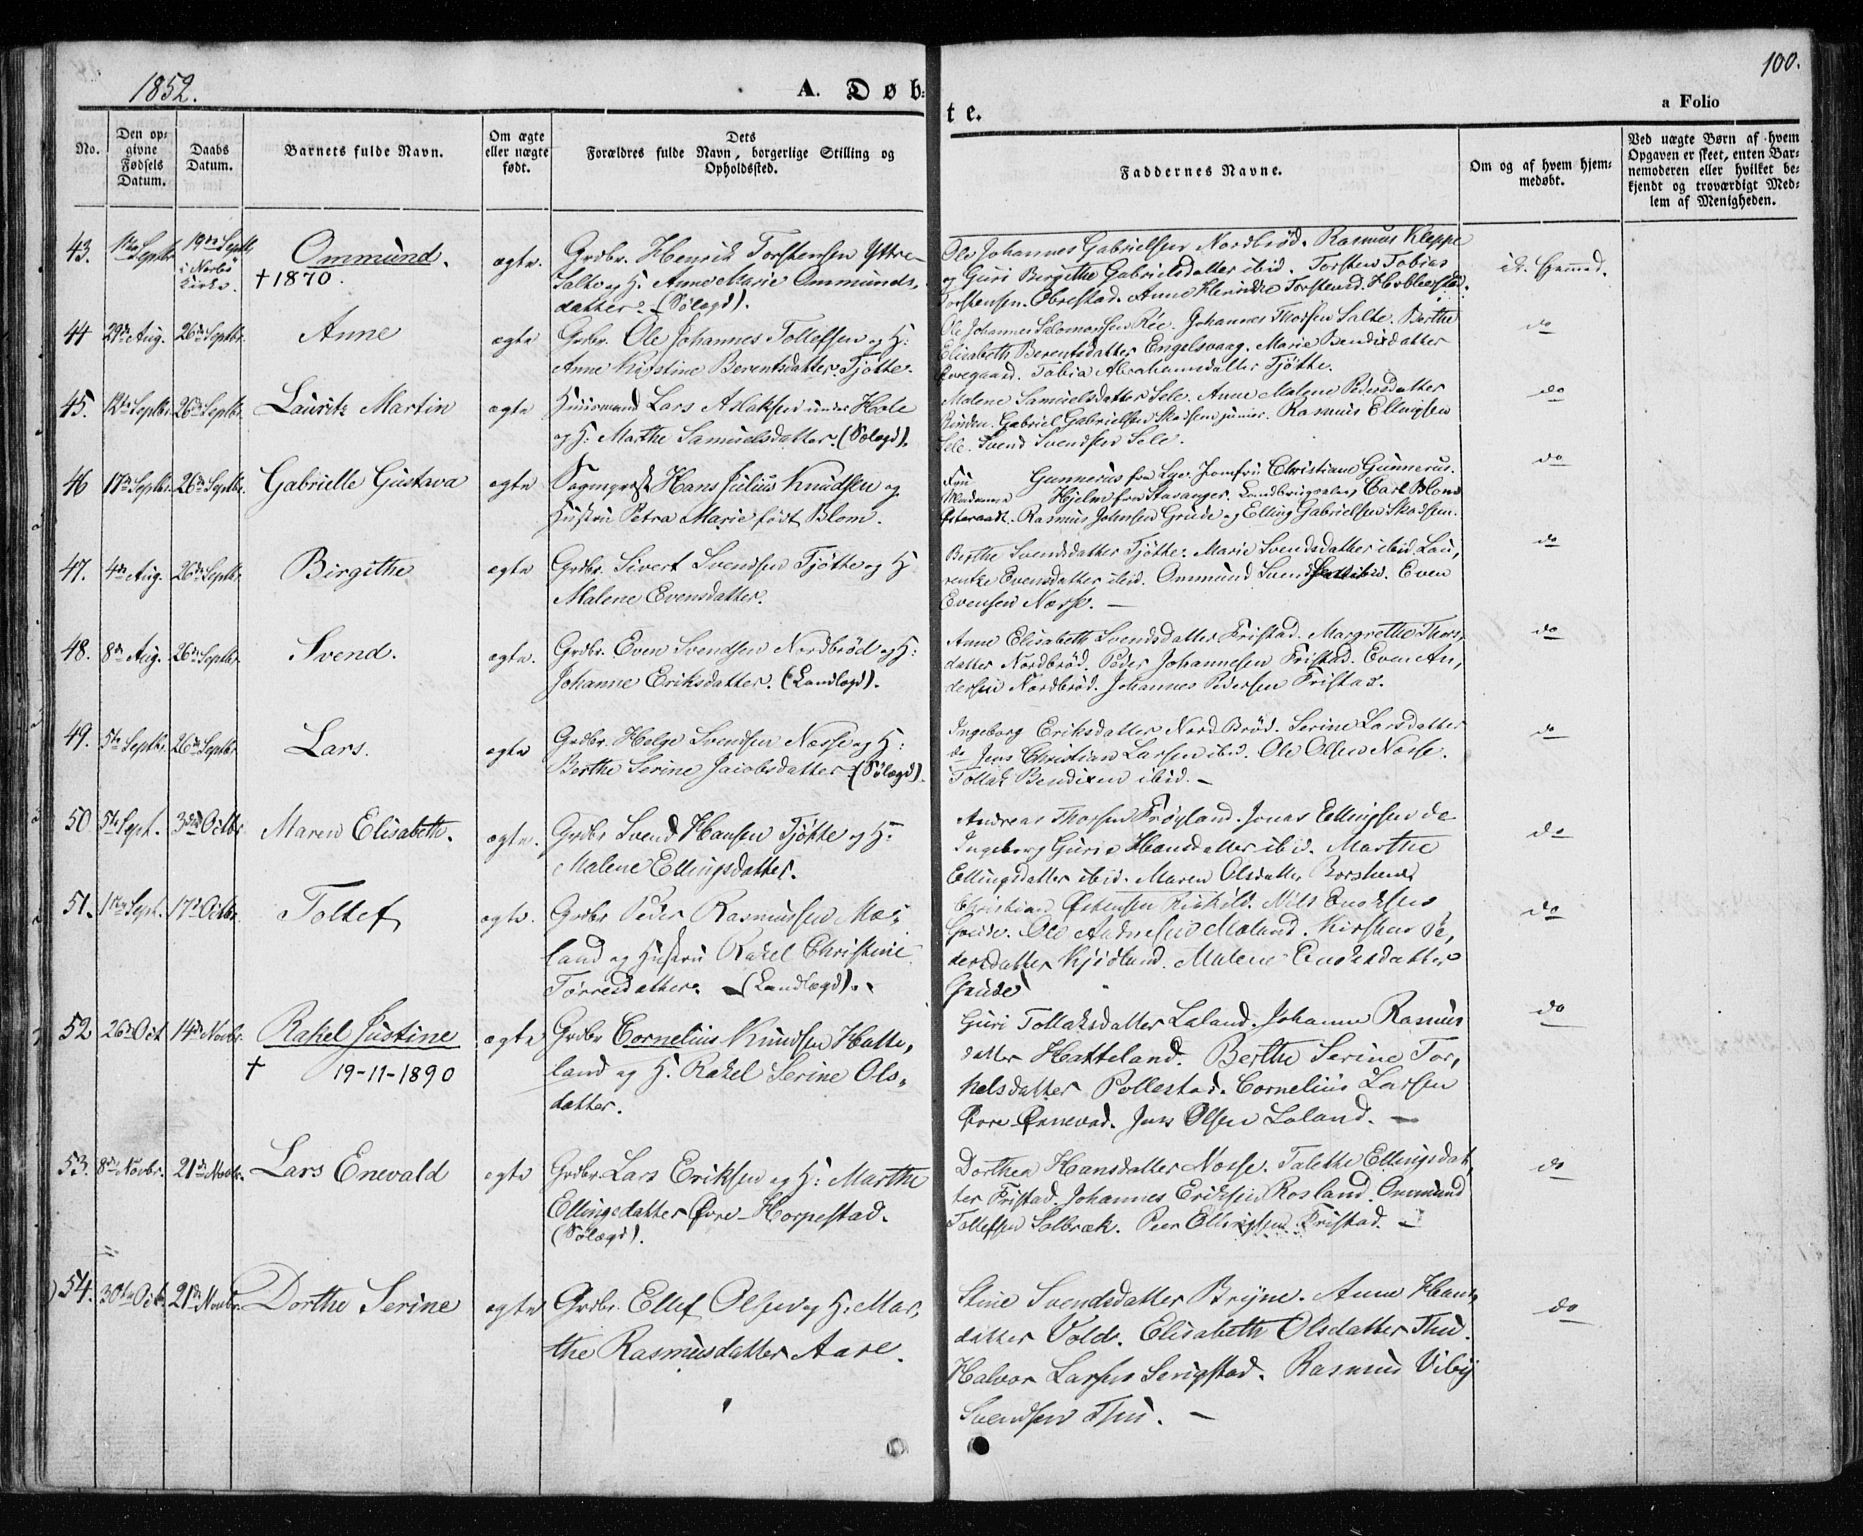 1852.
A. Døb:
te.
100.
a Folio
No.
Den op-
givne
Fødsels
Datum.
Daabs
Datum.
Barnets fulde Navn.
Om ægte
eller uægte
født.
Dets
Forældres fulde Navn, borgerlige Stilling og
Opholdssted.
Faddernes Navne.
Om og af hvem hjem-
medøbt.
Ved uægte Børn af hvem
Opgaven er skeet, enten Bar-
nemoderen eller hvilket be-
kjendt og troværdigt Med-
lem af Menigheden.
43. 1ste Septbr 19de Septbr Ommund. ægte. Grdbr. Henrik Torstensen Yttre-
i Nærbø
Kirke. † 1870. Salte og H: Anne Marie Ommunds-
datter. (Sølægd).
Ole Johannes Gabrielsen Nordbrød. Rasmus Kleppe
og Guri Birgithe Gabrielsdatter ibid. Torsten Tobias
Torstensen Obrestad. Anne Henrikke Torstensd.
44 29de Aug. 26de Septbr. Anne ægte Grdbr. Ole Johannes Tollefsen og H:
Anne Kirstine Berentsdatter Tjøtte.
Ole Johannes Salomonsen Rée. Johannes Thorsen Salte. Berthe
Elisabeth Berentsdatter Engelsvaag. Marie Bendixdatter
Tobia Abrahamsdatter Tjøtte.
do
45. 12te Septbr. 26de Septbr. Lauritz Martin ægte Huusmand Lars Aslaksen under Hole
og H: Marthe Samuelsdatter. (Sølægd).
Malene Samuelsdatter Sele. Anne Malene Pedersdatter
Gabriel Gabrielsen Skadsem junior. Rasmus Ellingsen
Sele. Svend Svendsen Sele.
do
46 17de Septbr. 26de Septbr. Gabrielle Gustava ægte Sogneprest Hans Julius Knudsen og
Hustru Petra Marie født Blom.
Fru Gunnerus fra Lye. Jomfru Christiane Gunnerus.
Madame Hjelm fra Stavanger. Carl Blom
Østeraadt. Rasmus Johnsen Grude og Elling Gabrielsen Skadsem.
do
47. 4de Aug. 26de Septbr. Birgithe ægte Grdbr. Sivert Svendsen Tjøtte og H
Malene Evensdatter.
Berthe Svendsdatter Tjøtte. Marie Svendsdatter ibid. Lau,
rentse Evensdatter ibid. Ommund Svendsen ibid. Even
Evensen Næsse. —
do
48. 8de Aug. 26de Septbr. Svend. ægte. Grdbr. Even Svendsen Nordbrød og H:
Johanne Eriksdatter. (Landlægd).
Anne Elisabeth Svendsdatter Fristad. Margrethe Thors,
datter Nordbrød. Peder Johannesen Fristad. Even An,
dersen Nordbrød. Johannes Pedersen Fristad.
do
49. 5te Septbr. 26de Septbr Lars. ægte Grdbr. Helge Svendsen Næsse og H:
Berthe Serine Jacobsdatter (Sølægd).
Ingeborg Eriksdatter Nord Brød. Serine Larsdatter
do Jens Christian Larsen ibid. Ole Olsen Næsse.
Tollak Bendixen ibid. —
do
50 5te Sept. 3die Octbr Maren Elisabeth. ægte. Grdbr Svend Hansen Tjøtte og H:
Malene Ellingsdatter.
Andreas Thorsen Frøyland. Jonas Ellingsen do
Ingeborg Gurie Hansdatter ibid. Marthe
Ellingsdatter ibid. Maren Olsdatter
do
51. 1ste Sept. 17de Octbr. Tollef ægte. Grdbr Peder Rasmussen Mæ-
land og Hustru Rakel Christine
Tørresdatter. (Landlægd).
Christian Østensen Nils Enoksen
Grude. Ole Andresen Mæland. Kirsten Pe,
dersdatter Kjosland. Malene Enoksdatter
Grude
do
52 26de Oct 14de Novbr. Rakel Justine ægte Grdbr Cornelius Knudsen Hatte,
† 19-11-1890 land og H. Rakel Serine Ols-
datter.
Guri Tollaksdatter Laland. Johanne Rasmus
datter Hatteland. Berthe Serine Tor,
kelsdatter Pollestad. Cornelius Larsen
Øvre Ønnevad. Jens Olsen Laland. —
do
53. 8de Novbr. 21de Novbr. Lars Enevald ægte Grdbr Lars Eriksen og H: Marthe
Ellingsdatter Øvre-Horpestad.
(Sølægd).
Dorthea Hansdatter Næsse. Talethe Ellingsdat,
ter Fristad. Johannes Eriksen Rosland. Ommund
Tollefsen Salbræk. Peer Ellingsen Fristad. —
do
54. 30te Oct. 21de Novbr. Dorthe Serine ægte Grdbr. Ellef Olsen og H. Mar,
the Rasmusdatter Aare.
Stine Svendsdatter Bryne. Anne Hans,
datter Vold. Elisabeth Olsdatter Thu.
Halvor Larsen Serigstad. Rasmus Viby
Svendsen Thu. —
do